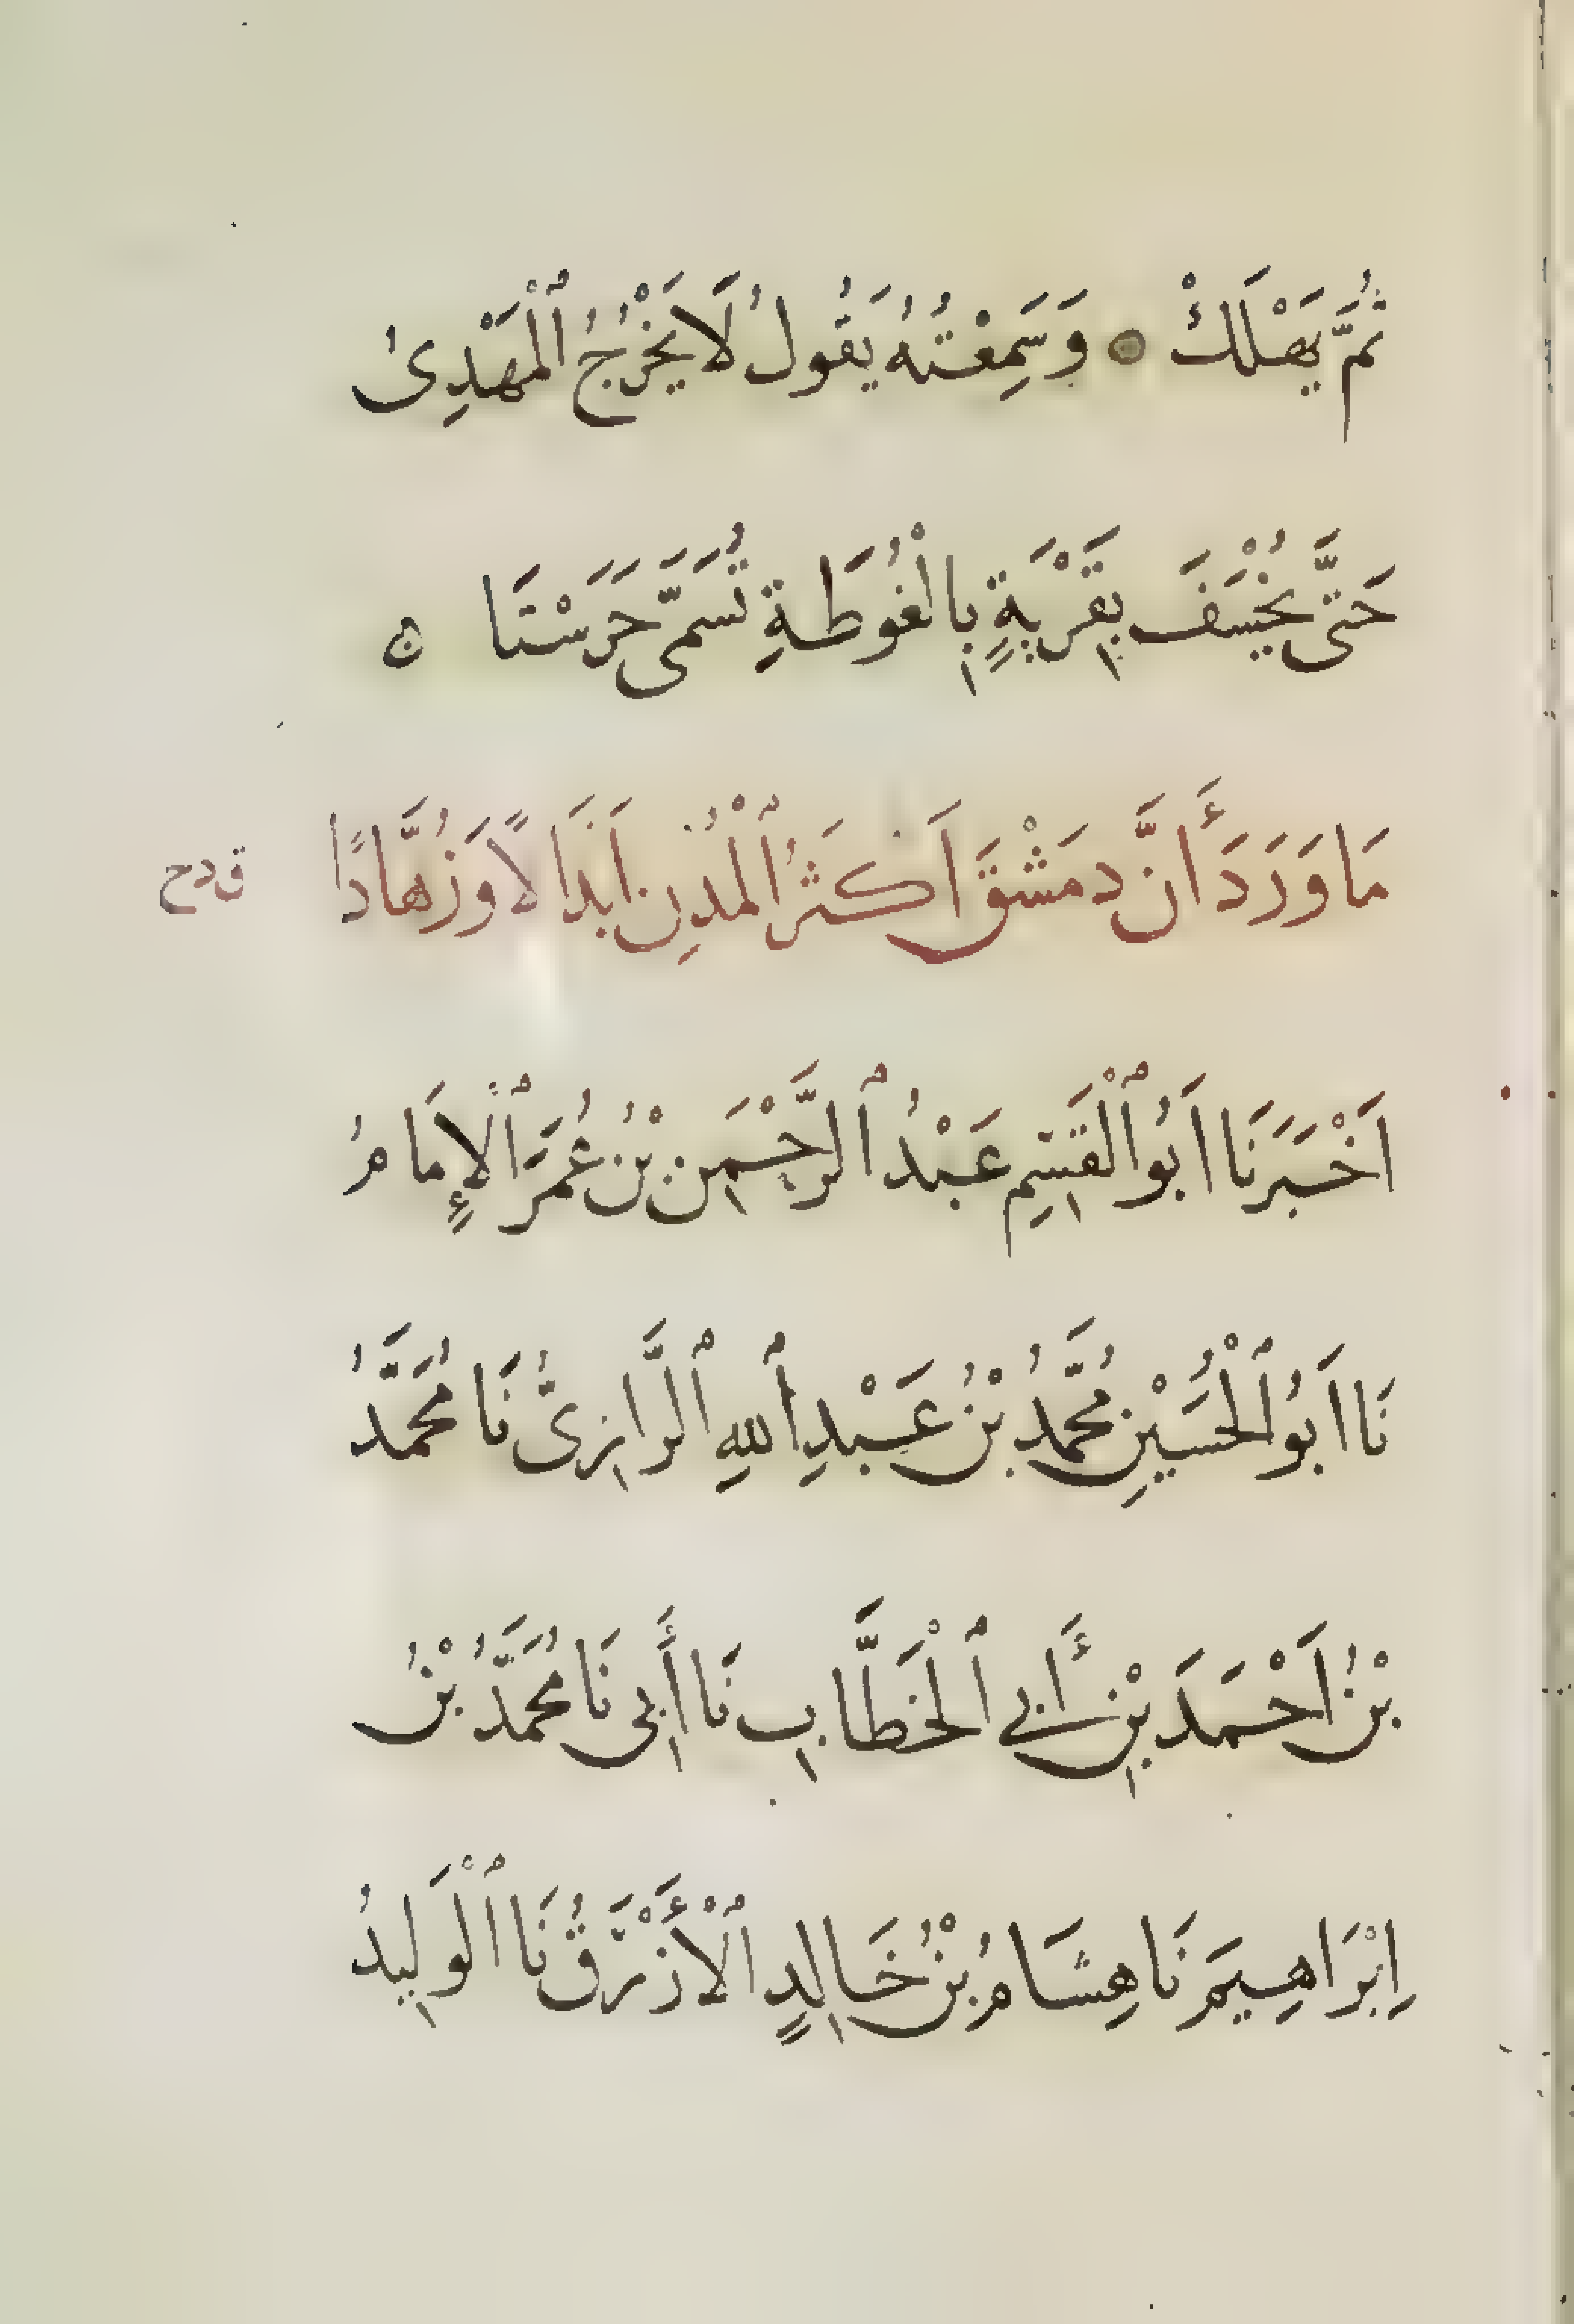 ثُمَّ يَهْلَكْ ۞ وَسَمِعْتُهُ يَقُولُ لَا يَخْرُجُ ٱلْمَهْدِىُ
حَتَّى يُخْسَفَ بِقَرْيَةٍ بِالْغُوطَةِ تُسَمَّى حَرَسْتَا ن
مَا وَرَدَ أَنَّ دِمَشْقَ اَكْثَرُ ٱلْمُدُنِ اَبْدَالًا وَزُهَّادًا
اَخْبَرَنَا اَبُو ٱلْقَسِمِ عَبْدُ ٱلرَّحْمَنِ بْنُ عُمَرَ ٱلْإِمَامُ
نَا اَبُو ٱلْحُسَيْنِ مُحَمَّدُ بْنُ عَبْدِ ٱللهِ ٱلرَّازِىُّ نَا مُحَمَّدُ
بْنُ اَحْمَدَ بْنِ أَبِي ٱلْخَطَّابِ نَا أَبِى نَا مُحَمَّدُ بْنُ
اِبْرَاهِيمَ نَا هِشَامُ بْنُ خَالِدٍ ٱلْأَزْرَقُ نَا ٱلْوَلِيدُ